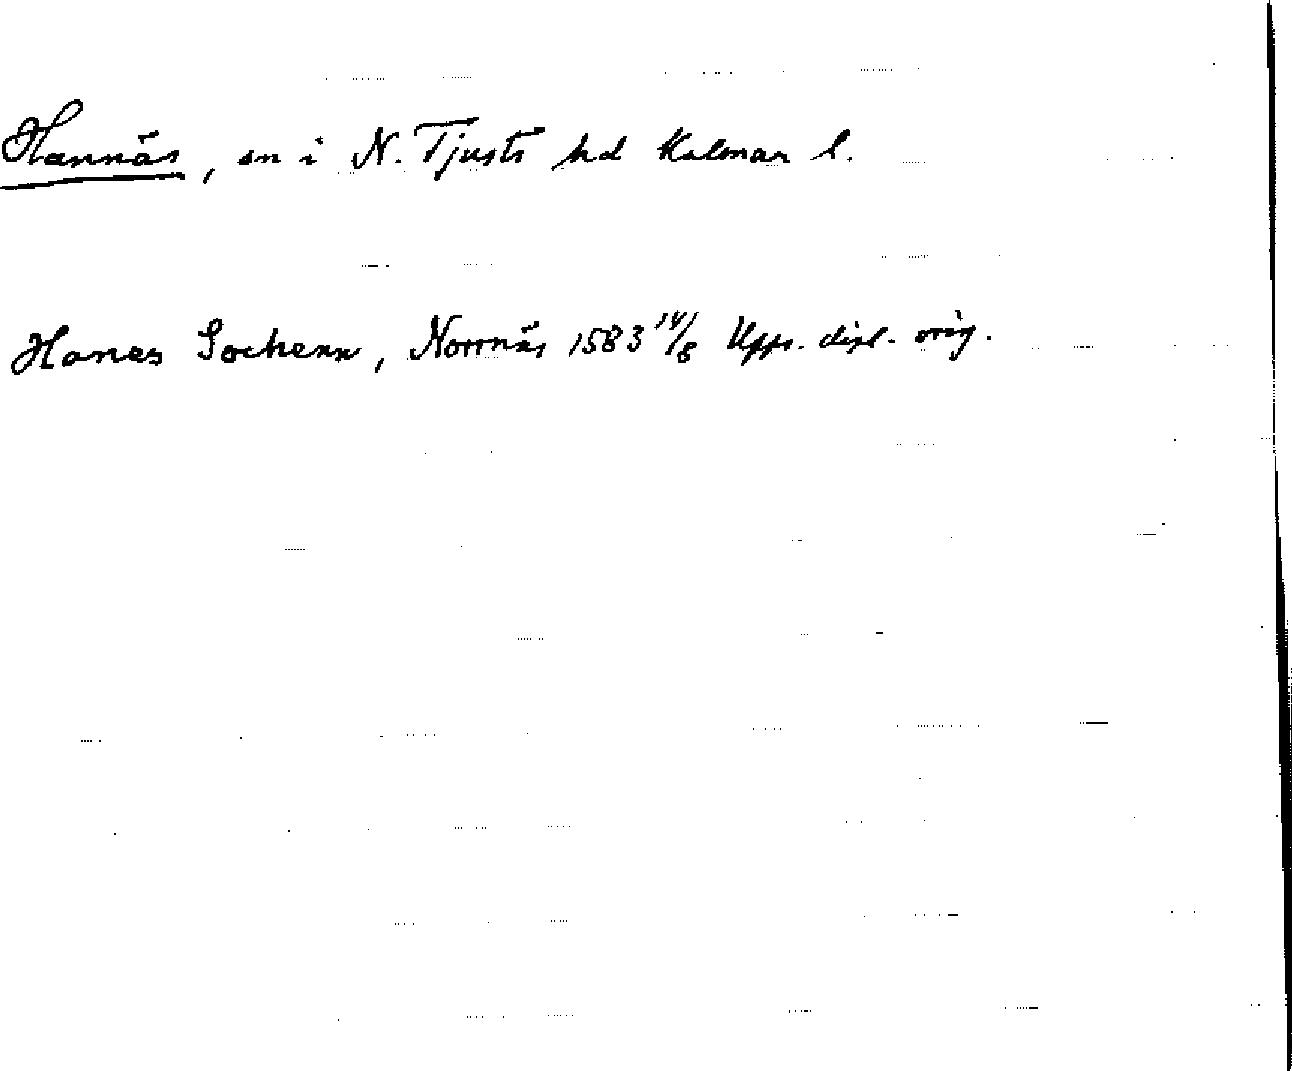 Hannäs, sn i N. Tjusts hd Kalmar l.
Hanes Sochenn, Norrnäs 1583 14/8 Upps. dipl. orig.